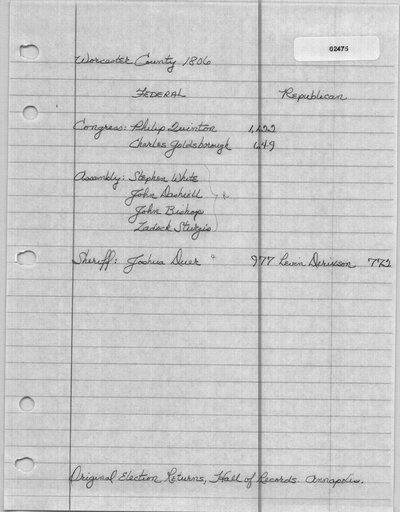 02475
Worcester County 1806
FEDERAL Republican
Congress: Philip Quinton 1,122
Charles Goldsborough 649
Assembly: Stephen White
John Dashiell
John Bishop
Zadock Sturgis
Sheriff: Joshua Duer 977 Levin Derickson 772
Original Election Returns, Hall of Records. Annapolis.